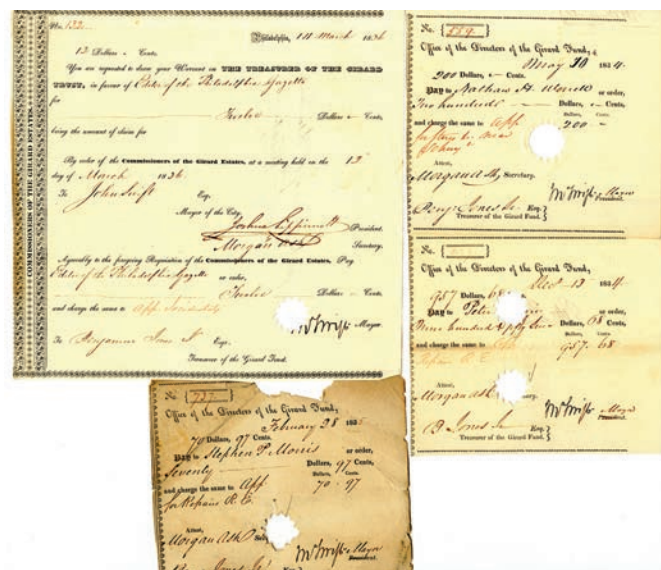 COMMISSIONERS OF THE GIRARD ESTATES.
No. 132
Philadelphia, 14 March 1836
13 Dollars " Cents.
You are requested to draw your Warrant on THE TREASURER OF THE GIRARD
TRUST, in favour of Editor of the Philadelphia Gazette
for
Twelve Dollars " Cents,
being the amount of claim for
By order of the Commissioners of the Girard Estates, at a meeting held on the 13
day of March 1836
To John Swift Esq.
Mayor of the City.
Joshua Lippincott President.
Morgan Ash Secretary.
Agreeably to the foregoing Requisition of the Commissioners of the Girard Estates, Pay
Editor of the Philadelphia Gazette or order,
Twelve Dollars " Cents,
and charge the same to App. Incidentals
Mayor.
To Benjamin Jones Jr Esq.
Treasurer of the Girard Fund.
No. 559
Office of the Directors of the Girard Fund,
May 30 1834.
200 Dollars, " Cents.
Pay to Nathan H. or order,
Two hundred Dollars, " Cents,
Dollars, Cents.
and charge the same to App 200 "
for
Attest,
Morgan Ash Secretary.
Mayor
President.
Benj. Jones Jr. Esq.
Treasurer of the Girard Fund.
No.
Office of the Directors of the Girard Fund,
Decr 13 1834.
957 Dollars, 68
Pay to Peter or order,
Nine hundred & fifty seven Dollars, 68 Cents,
Dollars, Cents.
and charge the same to 957. 68
Repairs R. E.
Attest,
Morgan Ash
Mayor
President.
B. Jones Jr Esq.
Treasurer of the Girard Fund.
No. 727
Office of the Directors of the Girard Fund,
February 28 1835
70 Dollars, 97 Cents.
Pay to Stephen P. Morris or order,
Seventy Dollars, 97 Cents,
Dollars, Cents.
and charge the same to App 70. 97
for Repairs R. E.
Attest,
Morgan Ash
Mayor
President.
Jones Jr Esq.